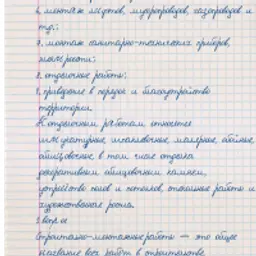 монтаж лифтов, мусоропроводов, газопроводов и
т.д.;
монтаж санитарно-технических приборов,
отделочные работы;
приведение в порядок и благоустройство
территории.
К отделочным работам относятся
штукатурные, малярные, обойные,
облицовочные в том числе отделка
декоративным облицовочным камнем,
устройство полов и потолков, стекольные работы и
художественная роспись.
Строительно-монтажные работы — это общее
название всех работ в строительстве,